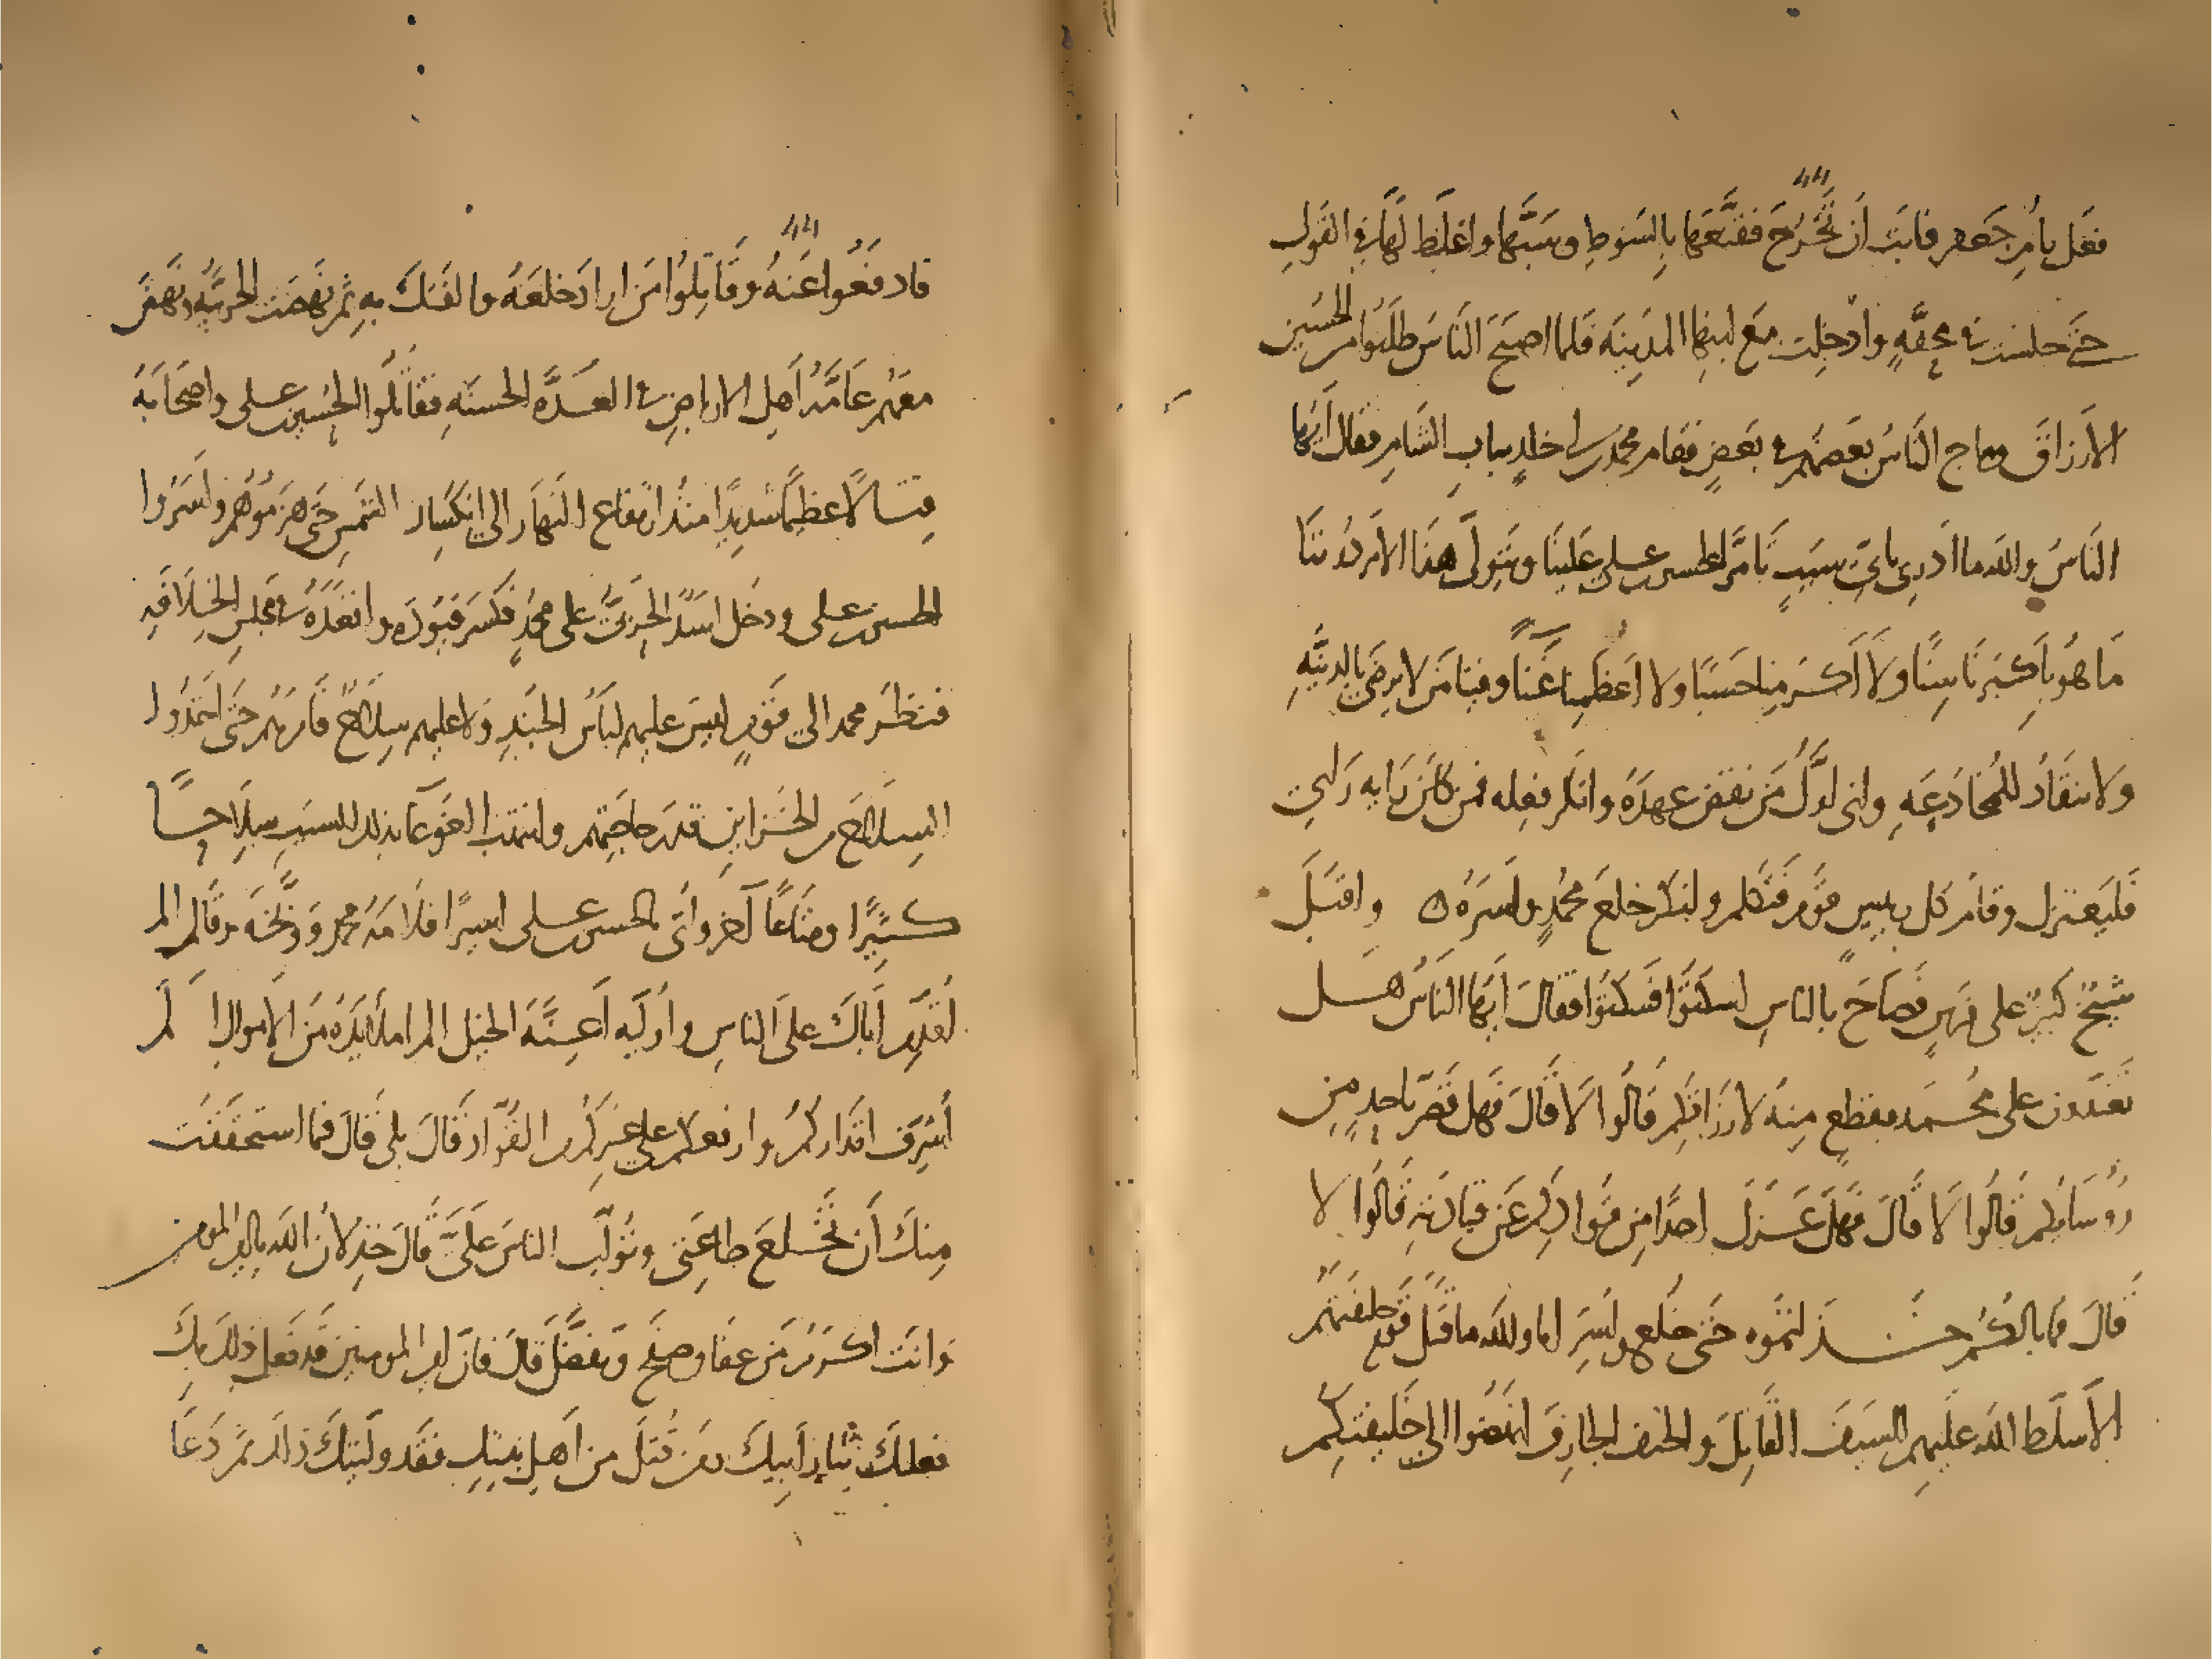 فقل بأم جعفر فابت أن تخرج فقنّعها بالسوط وسبّها واغلظ لها في القول
حتى جلست في محفّةٍ وادخلت مع ابنها المدينة فلما اصبح الناس طلبوا من الحسين
الارزاق وماج الناس بعضهم في بعضٍ فقام محمد بن ابي خالدٍ بباب الشام فقال ايها
الناس والله ما ادري باي سبب تأمّر الحسين بن علي علينا وتولّى هذا الامر دوننا
ما هو باكبرنا سنًا ولا اكرمنا حسبًا ولا اعظمنا غنا وفينا من لا يرضى بالدنيّة
ولا ينقاد للمخادعة واني اول من نقض عهده وانكر فعله فمن كان رايه رايي
فليعتزل وقام كل رييس قوم فتكلم وانكر خلع محمدٍ واسره ٥ واقبل
شيخ كبير على فرسٍ فصاح بالناس اسكتوا فسكتوا فقال ايها الناس هل
تعتدون على محمد بقطعٍ منه لارزاقكم قالوا لا قال فهل قصّر باحدٍ من
رؤسائكم قالوا لا قال فهل عزل احدًا من قوادكم عن قيادته قالوا لا
قال فما بالكم خذلتموه حتى خلع واسر اما والله ما قتل قوم خليفتهم
الا سلط الله عليهم السيف القاتل والحتف الجارف انهضوا الى خليفتكم
فادفعوا عنه وقاتلوا من اراد خلعه والفتك به ثم نهضت الحربيّة ونهض
معهم عامّة اهل الارباض في العدّة الحسنة فقاتلوا الحسين بن علي واصحابه
قتالًا عظيمًا شديدًا منذ ارتفاع النهار الى انكسار الشمس حتى هزموهم واسروا
الحسين بن علي ودخل اسد الحربيّ على محمدٍ فكسر قيوده واقعده في مجلس الخلافة
فنظر محمد الى قومٍ ليس عليهم لباس الجند ولا عليهم سلاحٌ فامرهم حتى اخذوا
السلاح من الخزاين قدر حاجتهم وانتهب الغوغا بذلك السبب سلاحًا
كثيرًا ومتاعًا آخر وأتى بالحسين بن علي اسيرًا فلامه محمد ووبّخه وقال له الم
أقدّم أباك على الناس واوليه أعنّة الخيل الم املأ يده من الاموال الم
أشرف اقداركم وارفعكم على غيركم من القوّاد قال بلى قال فما استحققت
منك أن تخلع طاعتي وتؤلّب الناس عليّ قال خذلان الله يا امير المومنين
وانت اكرم من عفا وصفح وتفضّل قال فان امير المومنين قد فعل ذلك بك
ثار أبيك ومن قتل من اهل بيتك فقد وليتك ذلك ثم دعا